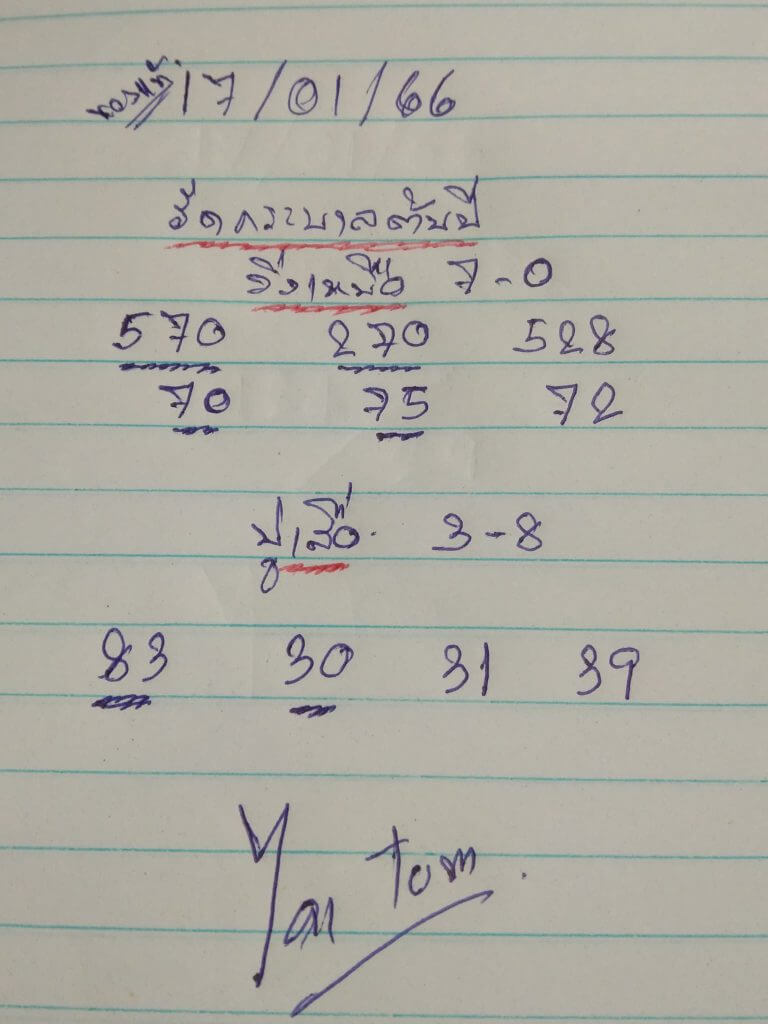 ของแท้ 17/01/66
รีดกระบาลต้นปี
วิ่งเหยื่อ 7-0
570 270 528
70 75 72
ปูเสื่อ 3-8
83 30 31 39
Yai Tom